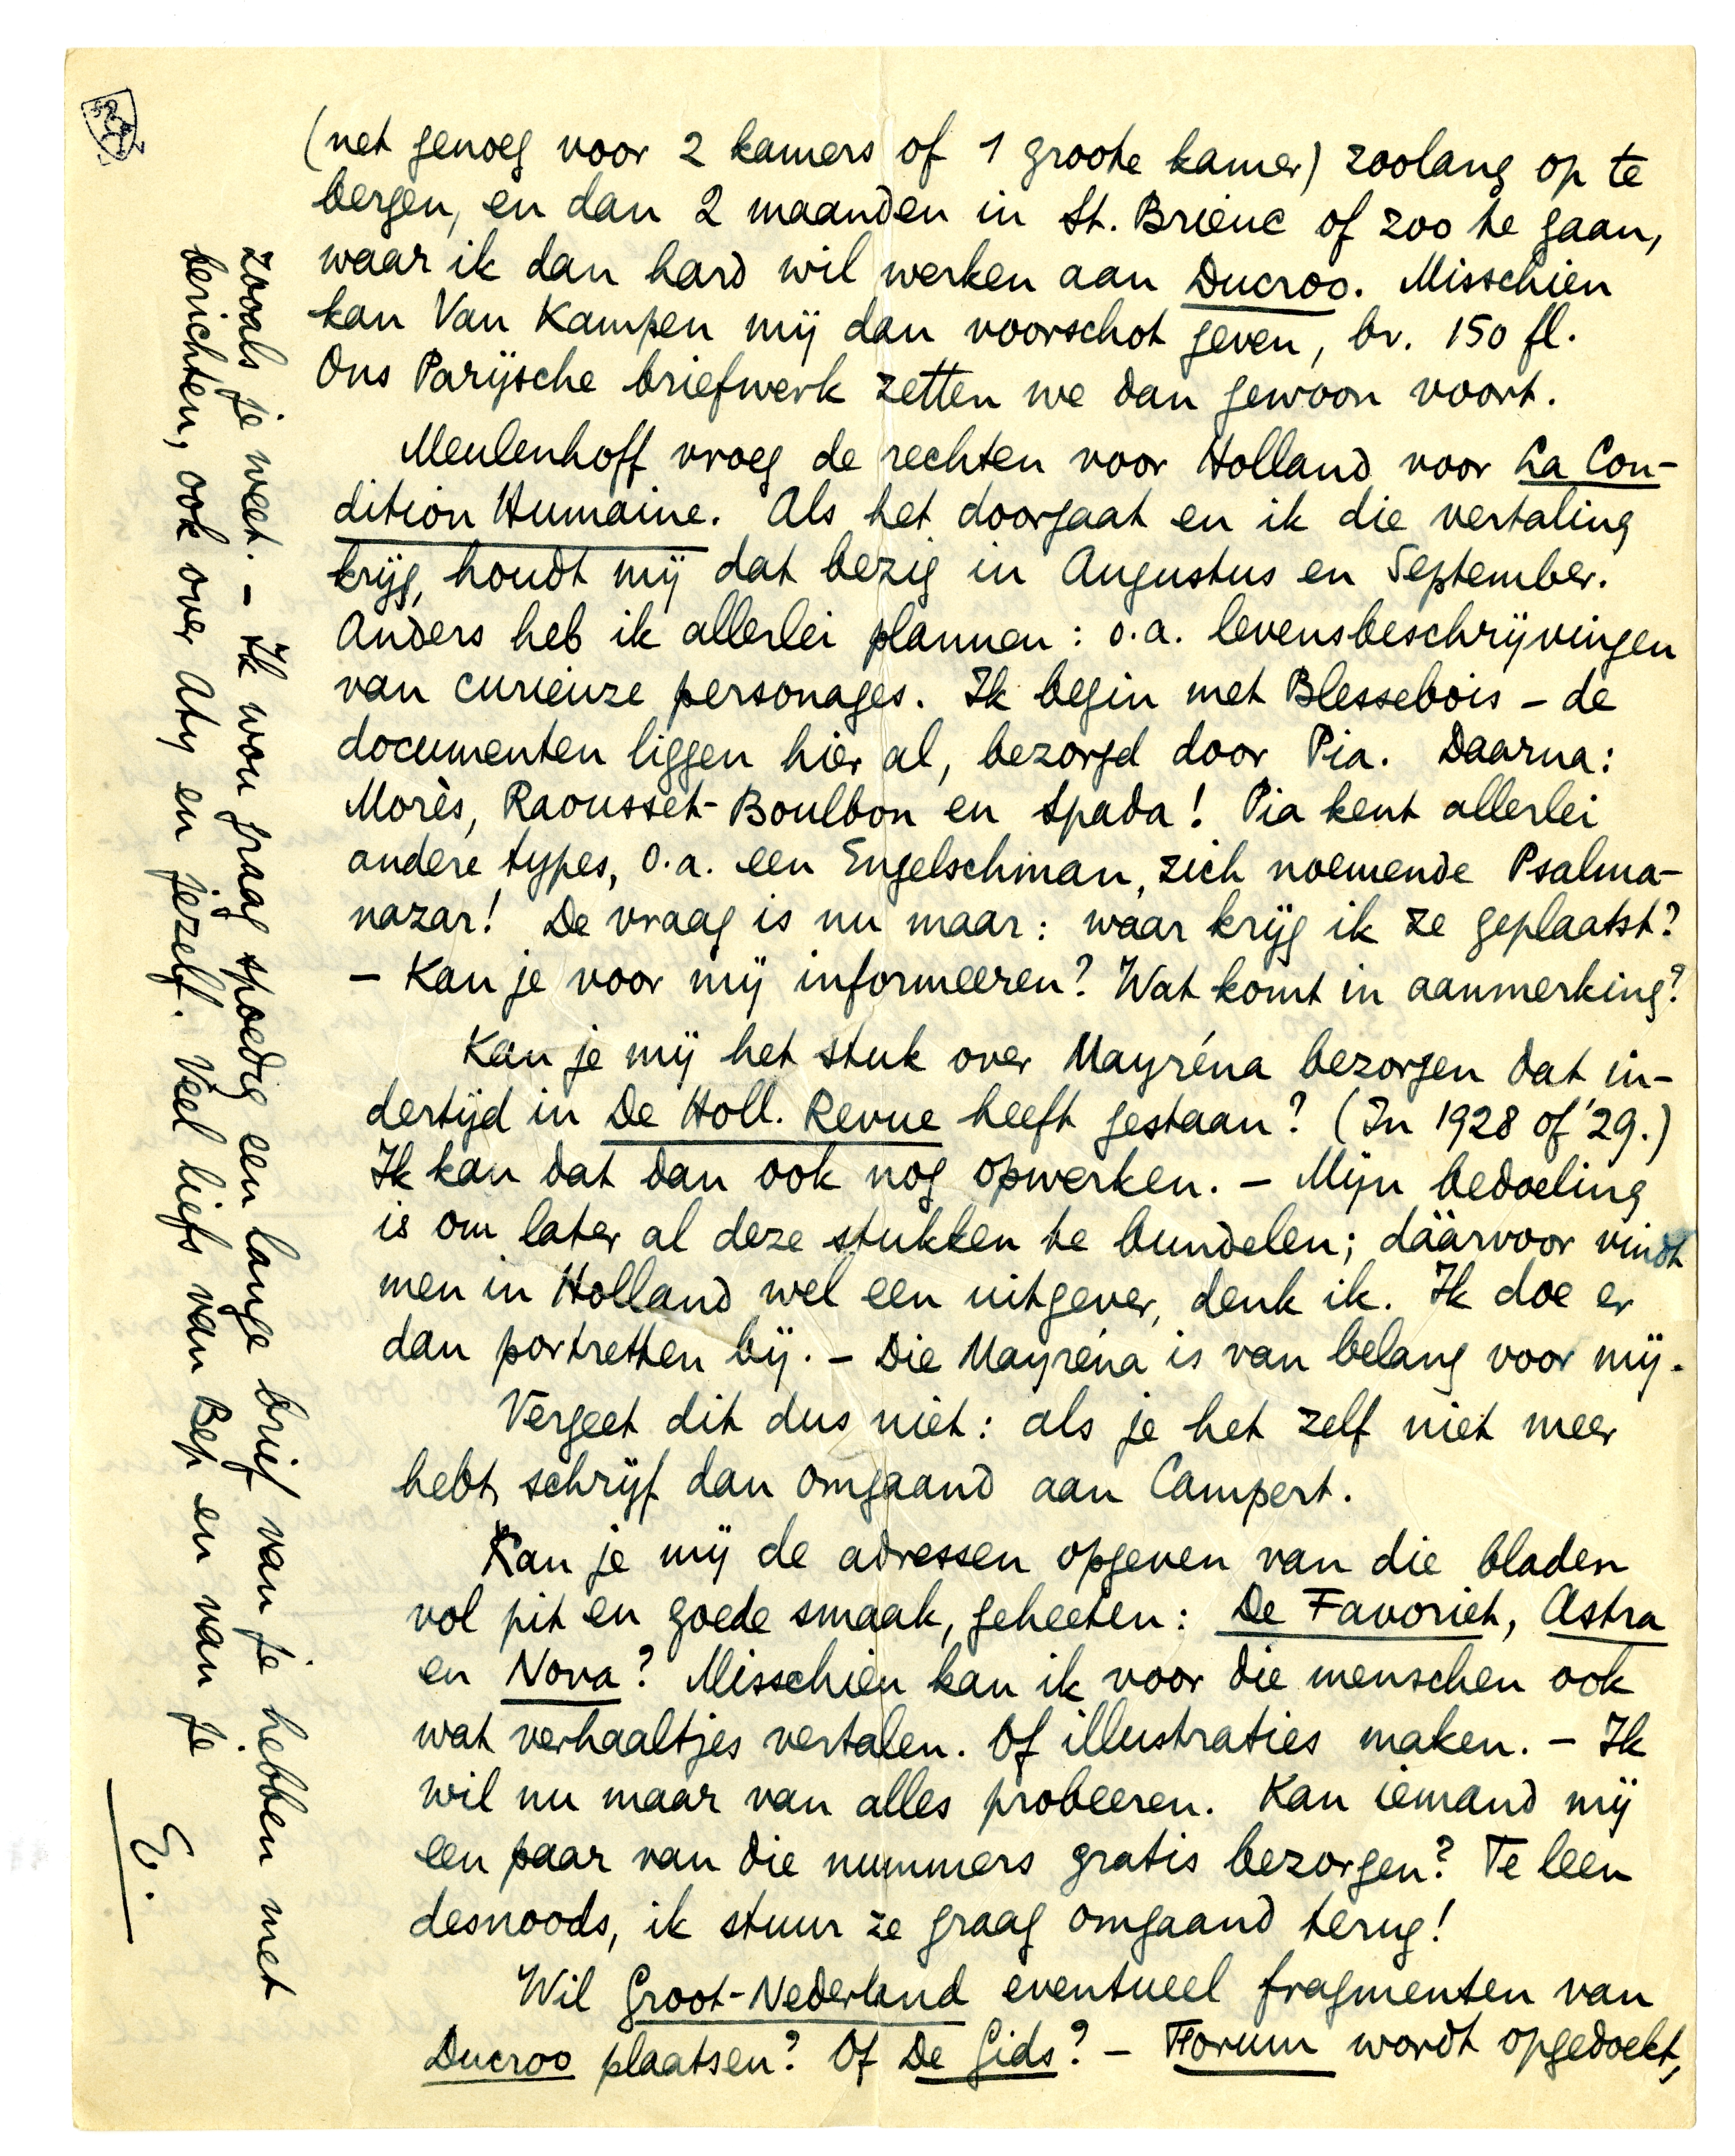 (net genoeg voor 2 kamers of 1 groote kamer) zoolang op te
bergen, en dan 2 maanden in St. Brieuc of zoo te gaan,
waar ik dan hard wil werken aan Ducroo. Misschien
kan Van Kampen mij dan voorschot geven, bv. 150 fl.
Ons Parijsche briefwerk zetten we dan gewoon voort.
Meulenhoff vroeg de rechten voor Holland voor La Con-
dition Humaine. Als het doorgaat en ik die vertaling
krijg, houdt mij dat bezig in Augustus en September.
Anders heb ik allerlei plannen: o.a. levensbeschrijvingen
van curieuze personages. Ik begin met Blessebois – de
documenten liggen hier al, bezorgd door Pia. Daarna:
Morès, Raousset-Boulbon en Spada! Pia kent allerlei
andere types, o.a. een Engelschman, zich noemende Psalma-
nazar! De vraag is nu maar: wáar krijg ik ze geplaatst?
– Kan je voor mij informeeren? Wat komt in aanmerking?
Kan je mij het stuk over Mayréna bezorgen dat in-
dertijd in De Holl. Revue heeft gestaan? (In 1928 of '29.)
Ik kan dat dan ook nog opwerken. – Mijn bedoeling
is om later al deze stukken te bundelen; dáárvoor vindt
men in Holland wel een uitgever, denk ik. Ik doe er
dan portretten bij. – Die Mayréna is van belang voor mij.
Vergeet dit dus niet: als je het zelf niet meer
hebt, schrijf dan omgaand aan Campert.
Kan je mij de adressen opgeven van die bladen
vol pit en goede smaak, geheeten: De Favoriet, Astra
en Nova? Misschien kan ik voor die menschen ook
wat verhaaltjes vertalen. Of illustraties maken. – Ik
wil nu maar van alles probeeren. Kan iemand mij
een paar van die nummers gratis bezorgen? Te leen
desnoods, ik stuur ze graag omgaand terug!
Wil Groot-Nederland eventueel fragmenten van
Ducroo plaatsen? Of De Gids? – Forum wordt opgedoekt,
zooals je weet. – Ik wou graag spoedig een lange brief van je hebben met
berichten, ook over Aty en jezelf. Veel liefs van Bep en van je
E.